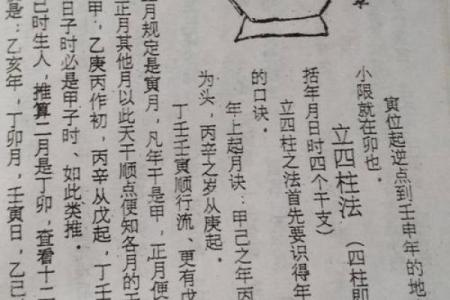 寅位起逆点到壬申年的地
小限就在卯也。
立四柱法（四柱即
括年月日时四个干支）
立四柱之法首先要识得年
的口诀。
年上起月诀：甲己之年丙
为头，丙辛之岁从庚起。
丁壬壬寅顺行流、更有戊
月规定是寅月，凡年干是甲，正月便
正月其他月以此天干顺点便知各月的
甲，乙庚丙作初，丙辛从戊起，丁壬
日子时必是甲子时、如此类推。
巳时生人，推算二月是丁卯，查看十二
是：乙亥年，丁卯月，壬寅日，乙巳